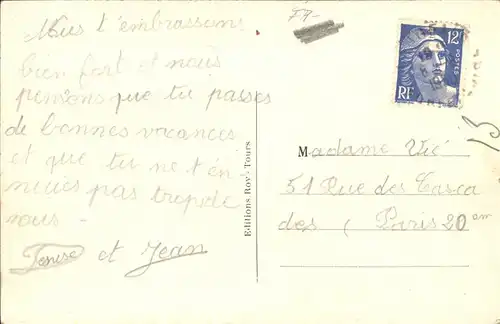 Nous t'embrassons
bien fort et nous
pensons que tu passes
de bonnes vacances
et que tu ne t'en-
nuies pas
nous -
Denise et Jean
Editions Roy - Tours
12F
POSTES
RF
Madame Vié
51 Rue des Casca
des ( Paris 20em